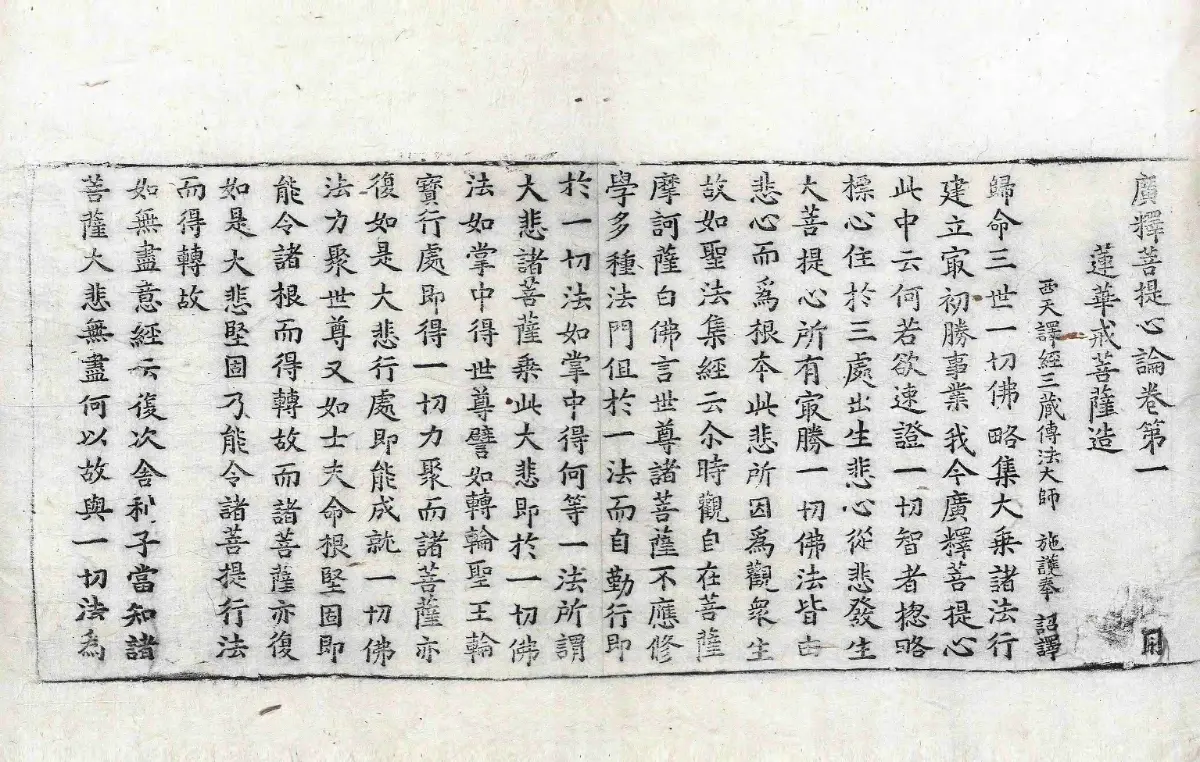 廣釋菩提心論卷第一
蓮華戒菩薩造
西天譯經三藏傳法大師 施護奉 詔譯
歸命三世一切佛略集大乘諸法行
建立㝡初勝事業我今廣釋菩提心
此中云何若欲速證一切智者揔略
標心住於三處出生悲心從悲發生
大菩提心所有㝡勝一切佛法皆由
悲心而爲根本此悲所因爲觀衆生
故如聖法集經云尒時觀自在菩薩
摩訶薩白佛言世尊諸菩薩不應修
學多種法門但於一法而自勤行即
於一切法如掌中得何等一法所謂
大悲諸菩薩乘此大悲即於一切佛
法如掌中得世尊譬如轉輪聖王輪
寶行處即得一切力聚而諸菩薩亦
復如是大悲行處即能成就一切佛
法力聚世尊又如士夫命根堅固即
能令諸根而得轉故而諸菩薩亦復
如是大悲堅固乃能令諸菩提行法
而得轉故
如無盡意經云復次舍利子當知諸
菩薩大悲無盡何以故與一切法爲